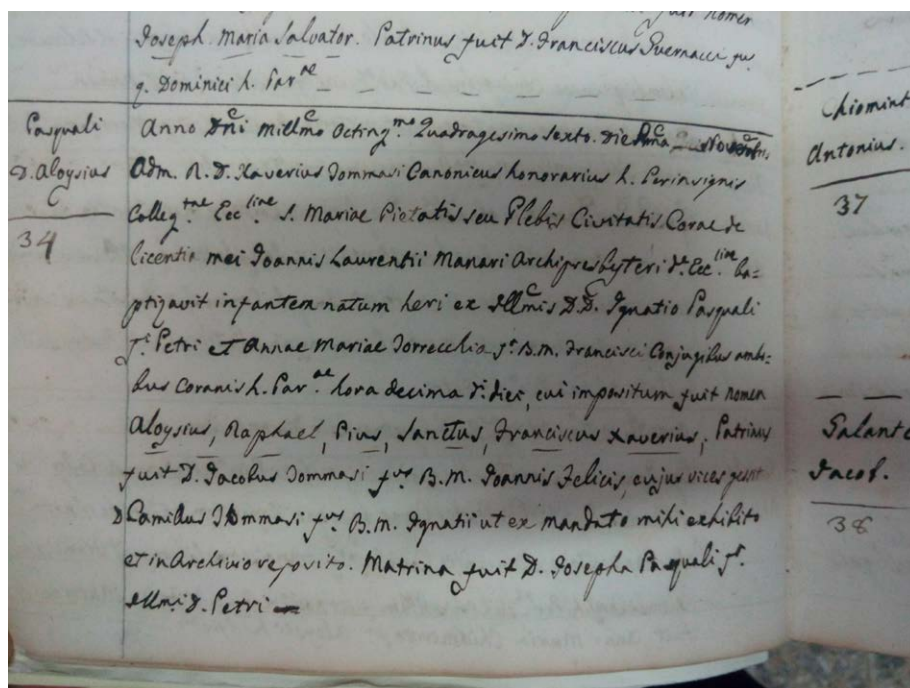 fuit nomen
Joseph. Maria Salvator. Patrinus fuit D. Franciscus Guernacci fus
q. Dominici h. Par^ae
Pasquali
D. Aloysius
34
Anno Dni Millmo Octing^mo Quadragesimo Sexto. Die Pma
Adm. R. D. Xaverius Tommasi Canonicus honorarius h. Perinsignis
Colleg^tae Ecc^liae S. Mariae Pietatis seu Plebis Civitatis Corae de
licentia mei Joannis Laurentii Manari Archipresbyteri d^e Ecc^liae ba=
ptizavit infantem natum heri ex Illmis D.D. Ignatio Pasquali
f^s Petri et Annae Mariae Torrecchia f^s B.M. Francisci Conjugibus ambo=
bus Coranis h. Par^ae hora decima d. diei, cui impositum fuit nomen
Aloysius, Raphael, Pius, Sanctus, Franciscus Xaverius, Patrinus
fuit D. Jacobus Tommasi f^us B.M. Joannis Felicis, cujus vices gessit
D. Camillus Tommasi f^us B.M. Ignatii ut ex mandato mihi exhibito
et in Archivio reposito. Matrina fuit D. Josepha Pasquali f^s.
Illmi D. Petri —
Antonius.
37
Jacob.
38